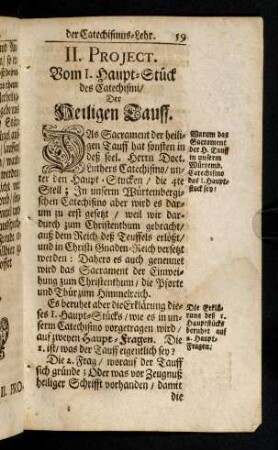 der Catechismus-Lehr. 59
II. PROJECT.
Vom I. Haupt-Stück
des Catechismi/
Der
Heiligen Tauff.
DAs Sacrament der heili-
gen Tauff hat sonsten in
deß seel. Herrn Doct.
Luthers Catechismo/ un-
ter den Haupt-Stucken/ die 4te
Stell; In unserm Würtembergi-
schen Catechismo aber wird es dar-
um zu erst gesetzt/ weil wir dar-
durch zum Christenthum gebracht/
auß dem Reich deß Teuffels erlößt/
und in Christi Gnaden-Reich versetzt
werden: Dahero es auch genennet
wird das Sacrament der Einwei-
hung zum Christenthum/ die Pforte
und Thür zum Himmelreich.
Es beruhet aber die Erklärung die-
ses I. Haupt-Stücks/ wie es in un-
serm Catechismo vorgetragen wird/
auf zweyen Haupt-Fragen. Die
1. ist/ was der Tauff eigentlich sey?
Die 2. Frag/ worauf der Tauff
sich gründe; Oder was vor Zeugnuß
heiliger Schrifft vorhanden/ damit
die
Warum das
Sacrament
der H. Tauff
in unserm
Würtemb.
Catechismo
das I. Haupt-
stuck sey?
Die Erklä-
rung deß 1.
Hauptstucks
beruhet auf
2. Haupt-
Fragen.